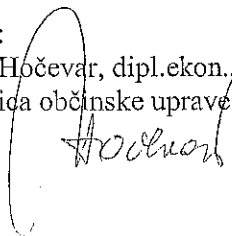 :
Hočevar, dipl.ekon.,
ica občinske uprave
Hočevar